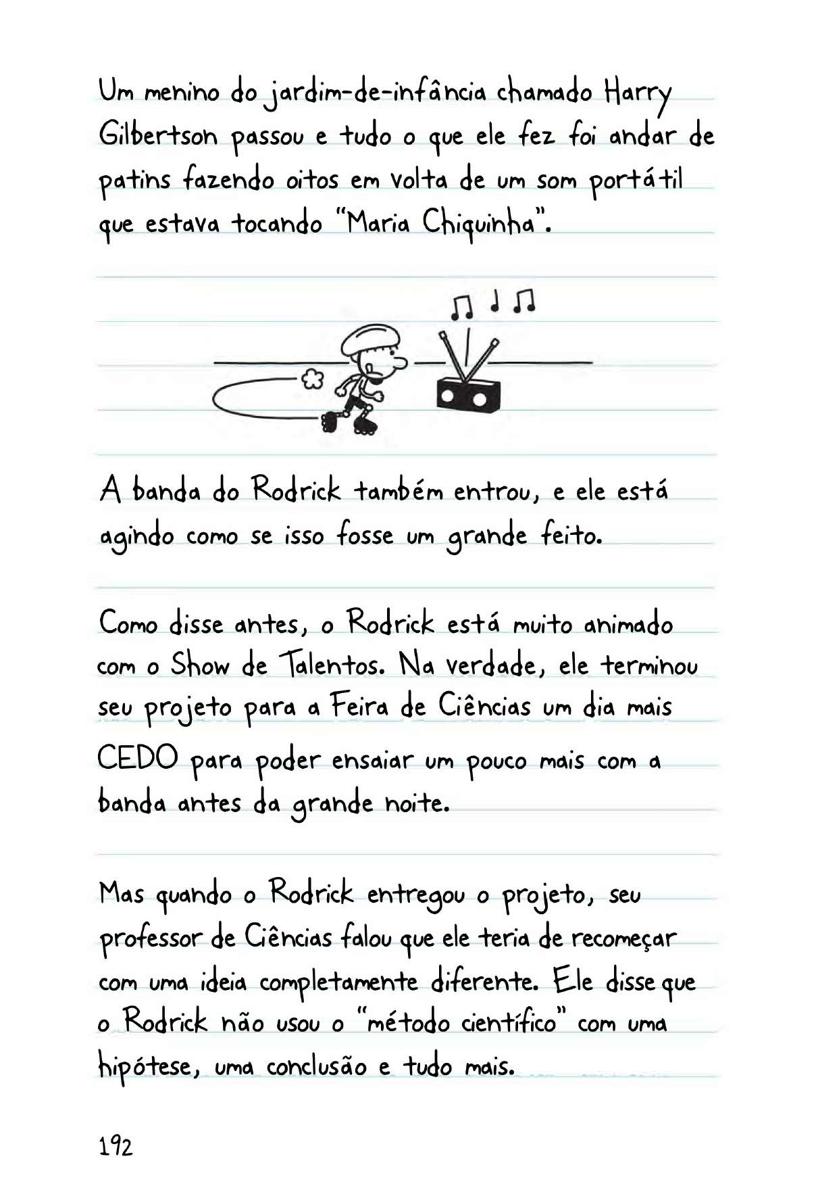 Um menino do jardim-de-infância chamado Harry
Gilbertson passou e tudo o que ele fez foi andar de
patins fazendo oitos em volta de um som portátil
que estava tocando “Maria Chiquinha”.
A banda do Rodrick também entrou, e ele está
agindo como se isso fosse um grande feito.
Como disse antes, o Rodrick está muito animado
com o Show de Talentos. Na verdade, ele terminou
seu projeto para a Feira de Ciências um dia mais
CEDO para poder ensaiar um pouco mais com a
banda antes da grande noite.
Mas quando o Rodrick entregou o projeto, seu
professor de Ciências falou que ele teria de recomeçar
com uma ideia completamente diferente. Ele disse que
o Rodrick não usou o “método científico” com uma
hipótese, uma conclusão e tudo mais.
192